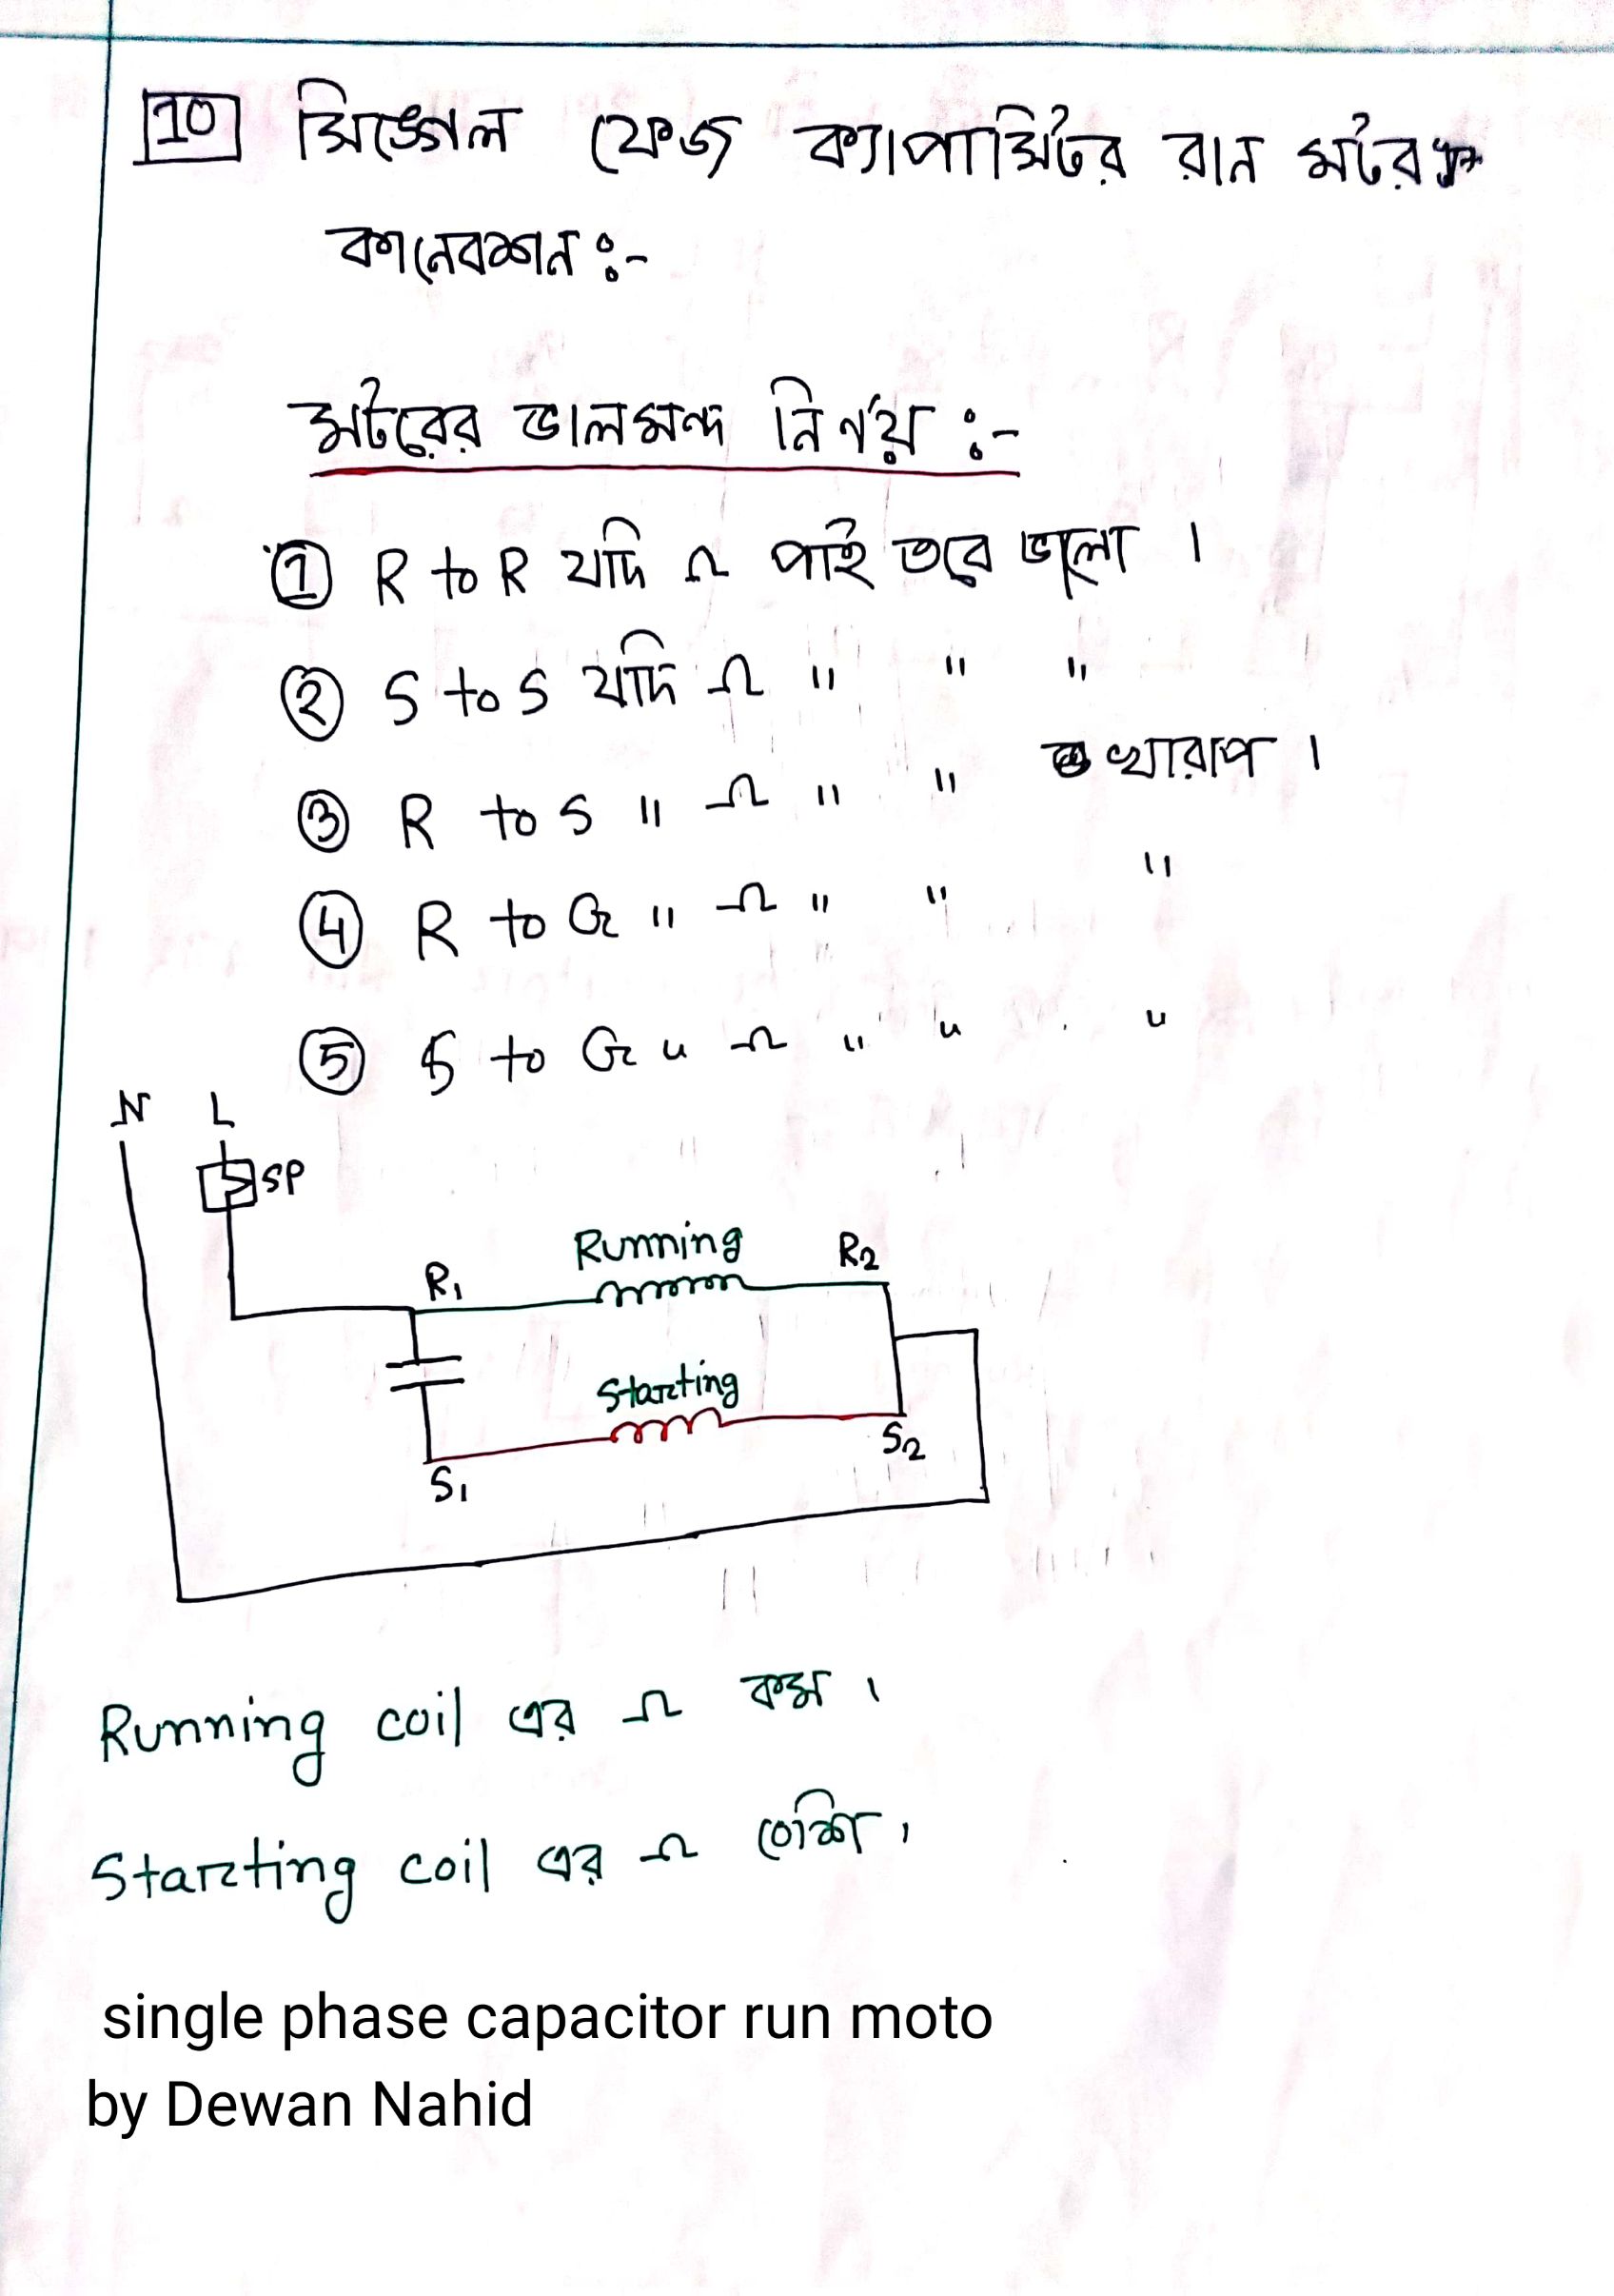 10 সিঙ্গেল ফেজ ক্যাপাসিটর রান মটর
কানেকশন ঃ-
মটরের ভালমন্দ নির্ণয় ঃ-
① R to R যদি Ω পাই তবে ভালো ।
② S to S যদি Ω " " "
③ R to S " Ω " " খারাপ ।
④ R to G " Ω " " "
⑤ S to G " Ω " " "
N L
SP
Running
R₁ R₂
Starting
S₁ S₂
Running coil এর Ω কম ।
Starting coil এর Ω বেশি ।
single phase capacitor run moto
by Dewan Nahid